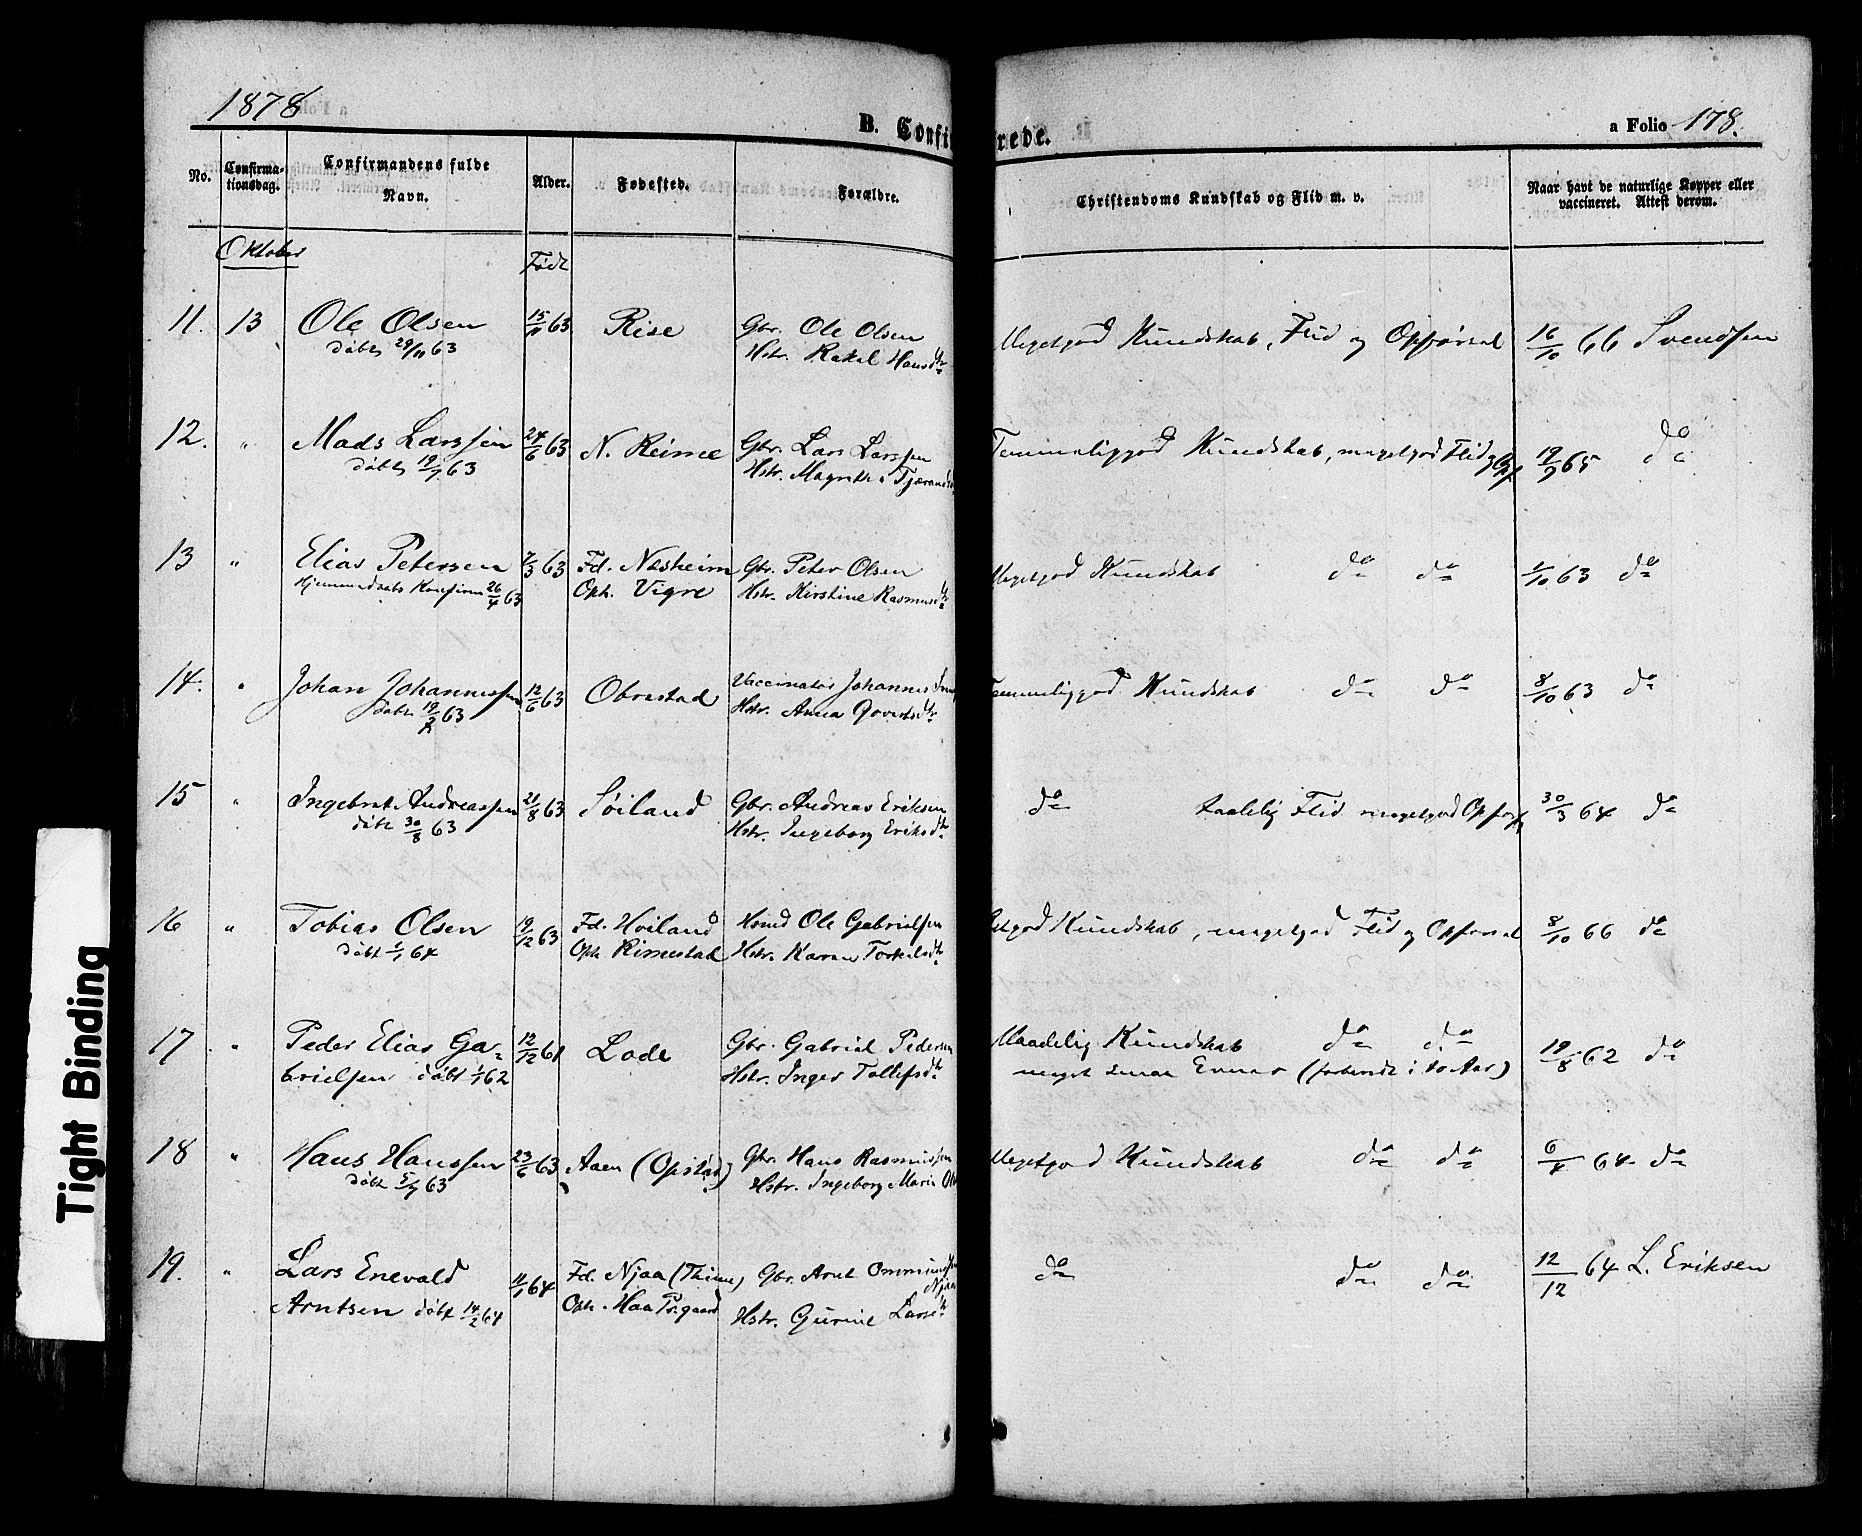 1878
B. Confi
rede.
a Folio 178.
No.
Confirma-
tionsdag.
Confirmandens fulde
Navn.
Alder.
Fødested.
Forældre.
Christendoms Kundskab og Flid m. v.
Naar havt de naturlige Kopper eller
vaccineret. Attest derom.
Oktober
Født
11. 13 Ole Olsen 15/11 63 Rise Gbr. Ole Olsen Megetgod Kundskab, Flid og Opførsel 16/10 66 Svendsen
døbt 29/11 63 Hstr. Rakel Hansdtr
12. " Mads Larssen 24/6 63 N. Reime Gbr. Lars Larssen Temmeliggod Kundskab, megetgod Flid og Opf 19/9 65 do
døbt 19/7 63 Hstr. Magretha
13 " Elias Petersen 7/3 63 Fd. Næsheim Gbr. Peter Olsen Megetgod Kundskab do do 1/10 63 do
Hjemmedøbt 26/4 63 Oph. Vigre Hstr. Kirstine Rasmusdtr
14. " Johan Johannessen 12/6 63 Obrestad Vaccinatør Johannes Temmeliggod Kundskab do do 8/10 63 do
døbt 19/7 63 Hstr. Anna Govertsdtr
15 " Ingebret Andreassen 21/8 63 Søiland Gbr. Andreas Eriksen do taalelig Flid megetgod Opførs 30/3 64 do
døbt 30/8 63 Hstr. Ingeborg Eriksdtr
16 " Tobias Olsen 19/12 63 Fd. Hviland Hsmd Ole Gabrielsen Kundskab, megetgod Flid og Opførsel 8/10 66 do
døbt 1/1 64 Oph. Rimestad Hstr. Karen Torkelsdtr
17. " Peder Elias Ga- 12/12 61 Lode Gbr. Gabriel Pedersen Maadelig Kundskab do do 19/8 62 do
brielsen døbt 1/1 62 Hstr. Inger Tollefsdtr meget smaa Evner (forberedt i to Aar)
18 " Hans Hanssen 23/6 63 Aaen (Opstad) Gbr. Hans Rasmussen Megetgod Kundskab do do 6/4 64 do
døbt 5/7 63 Hstr. Ingeborg Marie
19. " Lars Enevald 11/1 64 Fd. Njaa (Thime) Gbr. Arnt do do do 12/12 64 L. Eriksen
Njaa
Arntsen døbt 14/2 64 Oph. Haa Prgaard Hstr. Gurine Larsdtr
Tight Binding